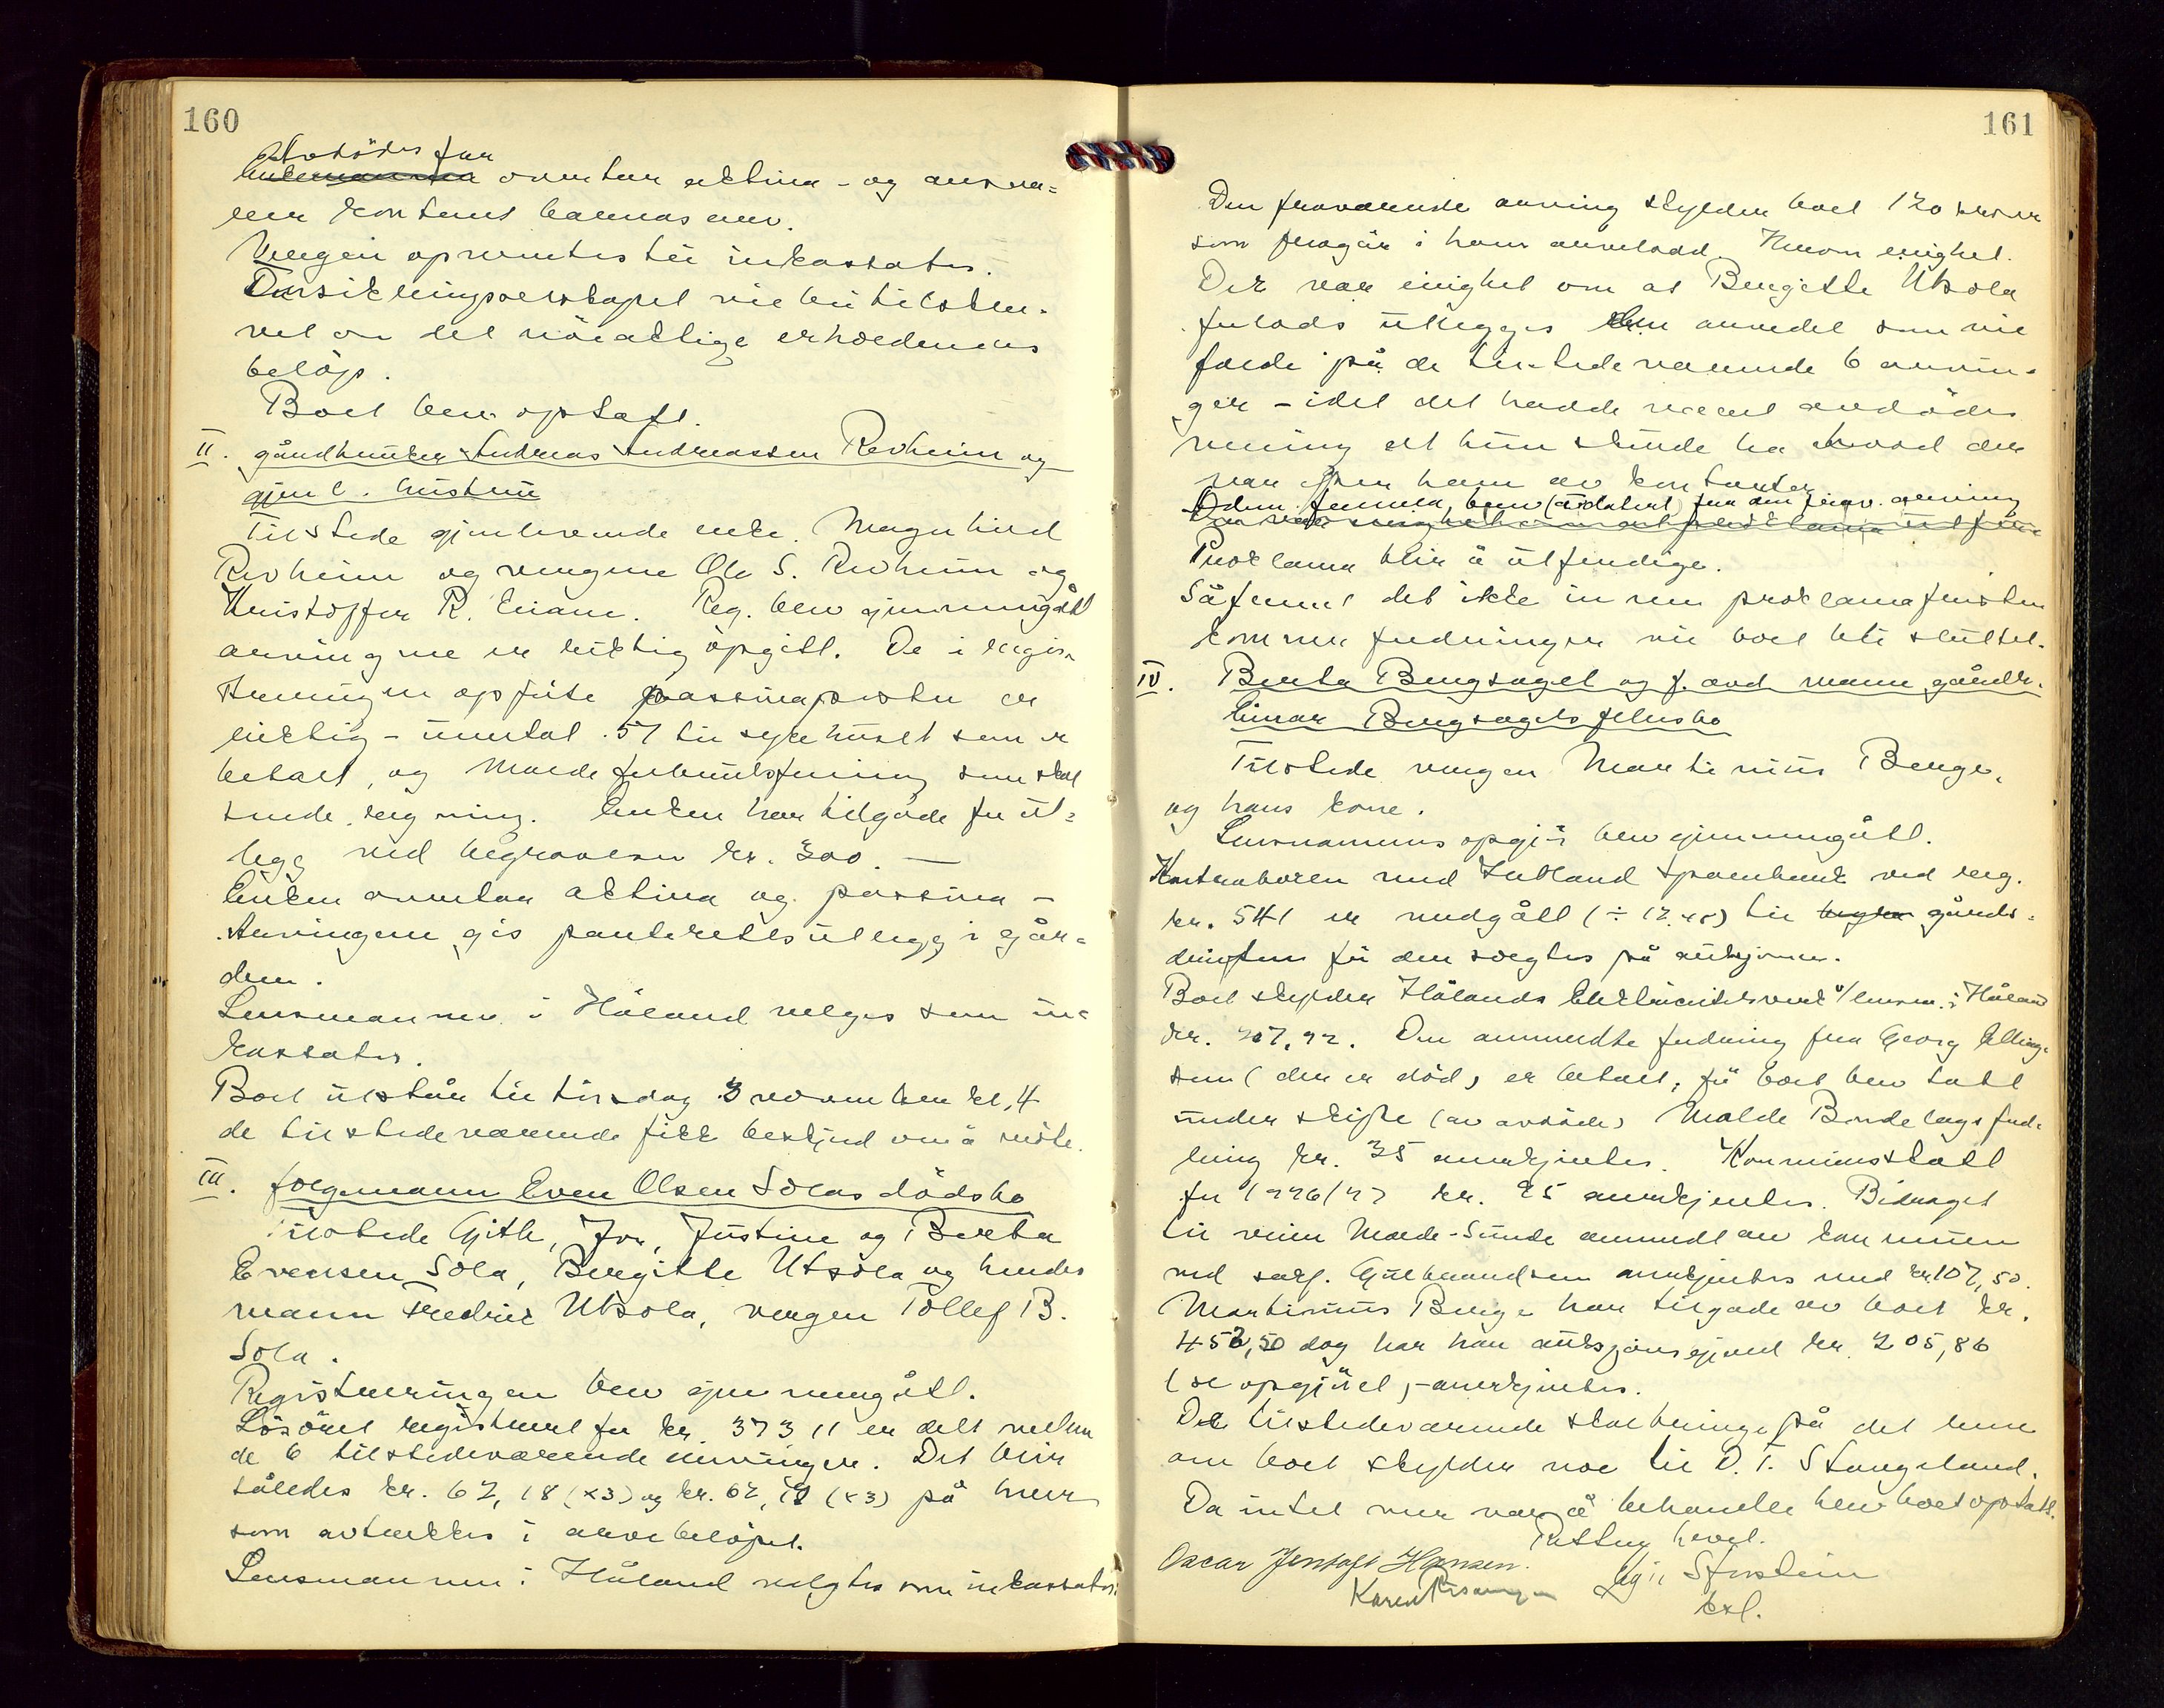 160
Avdödes far
overtar aktiva - og ansva-
rer kontant barnas arv.
Vergen opnevntes til inkassator.
Forsikringsselskapet vil bli tilskre-
vet om det nöiaktige erholdennes
belöp.
Boet blev optatt.
II. gårdbruker Andreas Andreassen Revheim og
gjenl. hustru
Tilstede gjenlevende enke Magnhild
Revheim og vergene Ole S. Revheim og
Kristoffer R. Eriane. Reg. blev gjennemgått
arvingene er riktig opgitt. De i regi-
streringen opförte passivaposter er
riktig - unntat 57 til sykehuset som er
betalt, og Malde forbruksforening som skal
sende regning. Enken har tilgode for ut-
legg ved begravelsen kr. 300. —
Enken overtar aktiva og passiva -
Arvingene gis panterettsutlegg i går-
den.
Lensmannen i Håland velges som in-
kassator.
Boet utstår til tirsdag 3 november kl. 4
de tilstedeværende fikk beskjed om å möte.
III. folgemann Even Olsen Solas dödsbo
Tilstede Gitle, Jon, Justine og Berta
Evensen Sola, Bergitte Utsola og hendes
mann Fredrik Utsola, vergen Tollef B.
Sola.
Registreringen blev gjennemgått.
Lösöret registrert for kr. 373 11 er delt mellem
de 6 tilstedeværende arvinger. Det blir
således kr. 62,18 (x3) og kr. 62,19 (x3) på hver
som avtrekkes i arvebelöpet.
Lensmannen i Håland velgtes som inkassator.
161
Den fraværende arving skylder boet 120 kroner
som fragår i hans arvelodd. Herom enighet.
Det var enighet om at Bergitte Utsola
forlods utlegges den arvedel som vil
falde på de tilstedeværende 6 arvin-
ger - idet det hadde været avdödes
mening at hun skulde ha hvad der
var efter ham av kontanter
blev (udatert) fra den frav. arving
Proklama blir å utferdige.
Såfremt det ikke innen proklamafristen
kommer fordringer vil boet bli sluttet.
IV. Berta Bergsagel og f. avd. mann gårdbr.
Einar Bergsagels fellesbo
Tilstede vergen Martinius Berge,
og hans kone.
Lensmannens opgjör blev gjennemgått.
Kontraboken med Jætland Sparebank ved reg.
kr. 541 er medgått (÷ 12.48) til gårds-
driften för den solgtes på auksjonen.
Boet skylder Hålands Elektricitetsverk v/ lensm. i Håland
kr. 307,92. Den anmeldte fordring fra Georg Elling-
sen (den er död) er betalt, för boet blev tatt
under skifte (av avdöde) Malde Bondelags ford-
ring kr. 35 anerkjentes. Kommuneskatt
for 1926/27 kr. 95 anerkjentes. Bidraget
til veien Malde-Sunde anmeldt av kommunen
ved sakf. Gulbrandsen anerkjentes med kr 107,50.
Martinius Berge har tilgode av boet kr.
452,50 dog har han auksjonsgjeld kr. 205,86
(se opgjöret) - anerkjentes.
De tilstedeværende skal bringe på det rene
om boet skylder noe til O. T. Stangeland.
Da intet mer var å behandle blev boet optatt.
Retten hevet.
Oscar Jentoft Hansen.
Karen